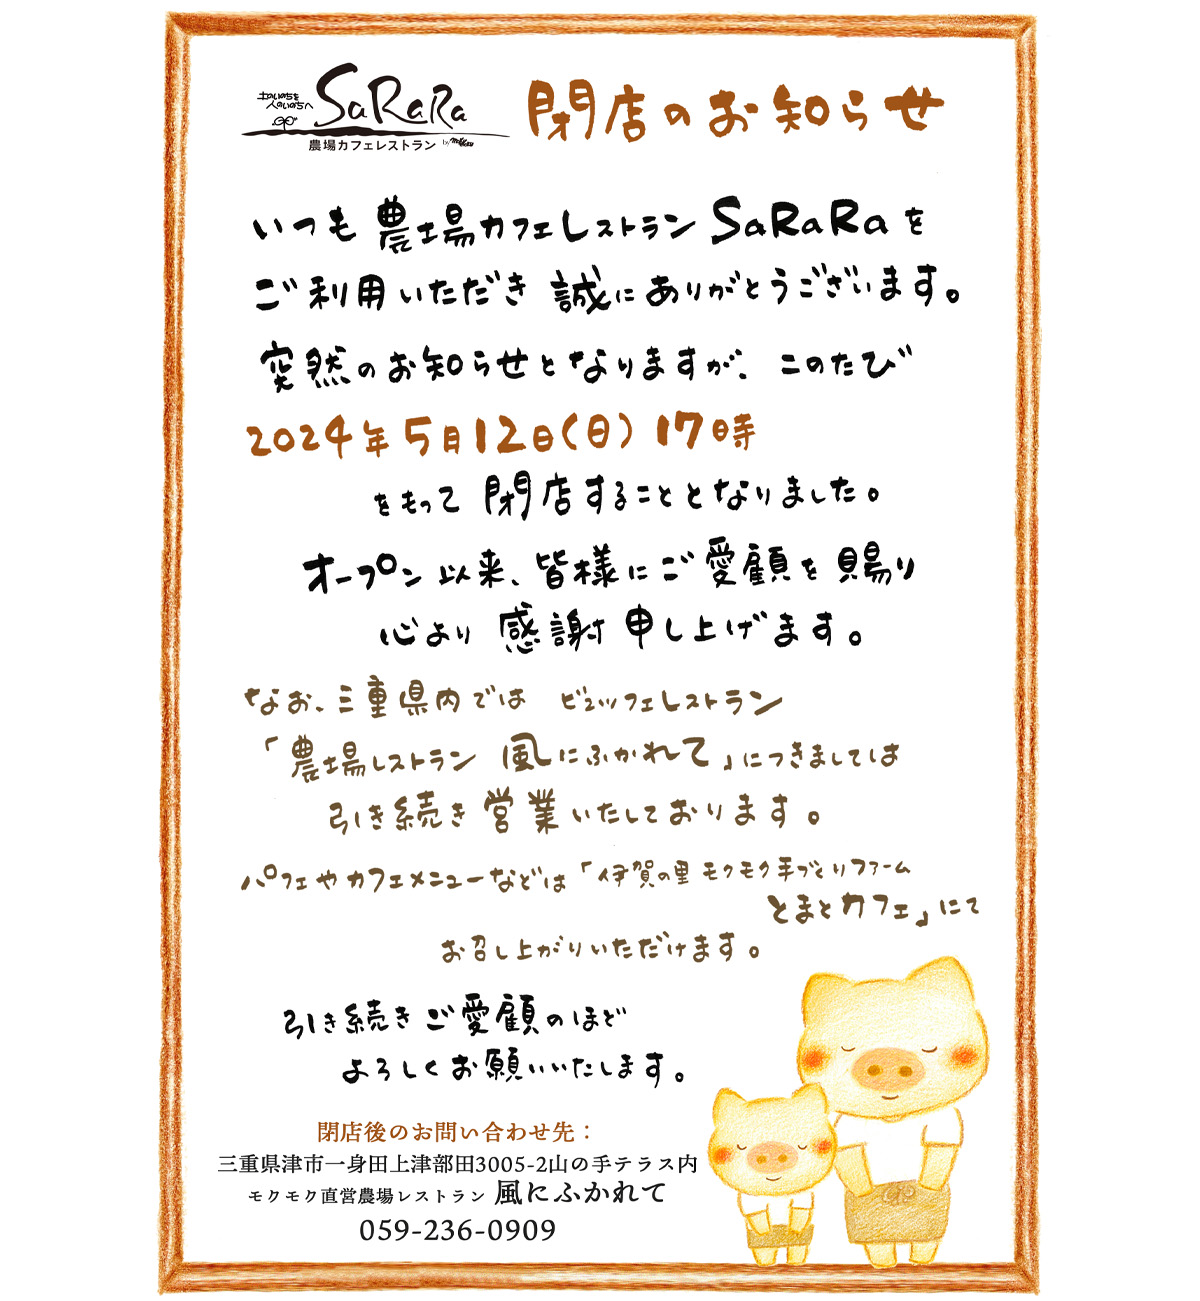 土のいのちを
人のいのちへ
SaRaRa
農場カフェレストラン
閉店のお知らせ
いつも農場カフェレストランSaRaRaを
ご利用いただき 誠にありがとうございます。
突然のお知らせとなりますが、このたび
2024年5月12日(日) 17時
をもって 閉店することとなりました。
オープン以来、皆様にご愛顧を賜り
心より 感謝申し上げます。
なお、三重県内では ビュッフェレストラン
「農場レストラン 風にふかれて」につきましては
引き続き 営業いたしております。
パフェやカフェメニューなどは「伊賀の里 モクモク手づくりファーム
とまとカフェ」にて
お召し上がりいただけます。
引き続きご愛顧のほど
よろしくお願いいたします。
閉店後のお問い合わせ先：
三重県津市一身田上津部田3005-2山の手テラス内
モクモク直営農場レストラン 風にふかれて
059-236-0909